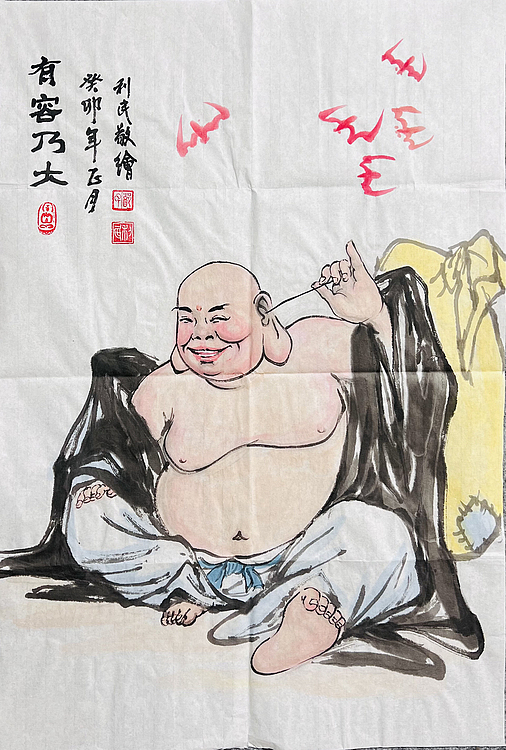 有容乃大
癸卯年正月
利民敬繪